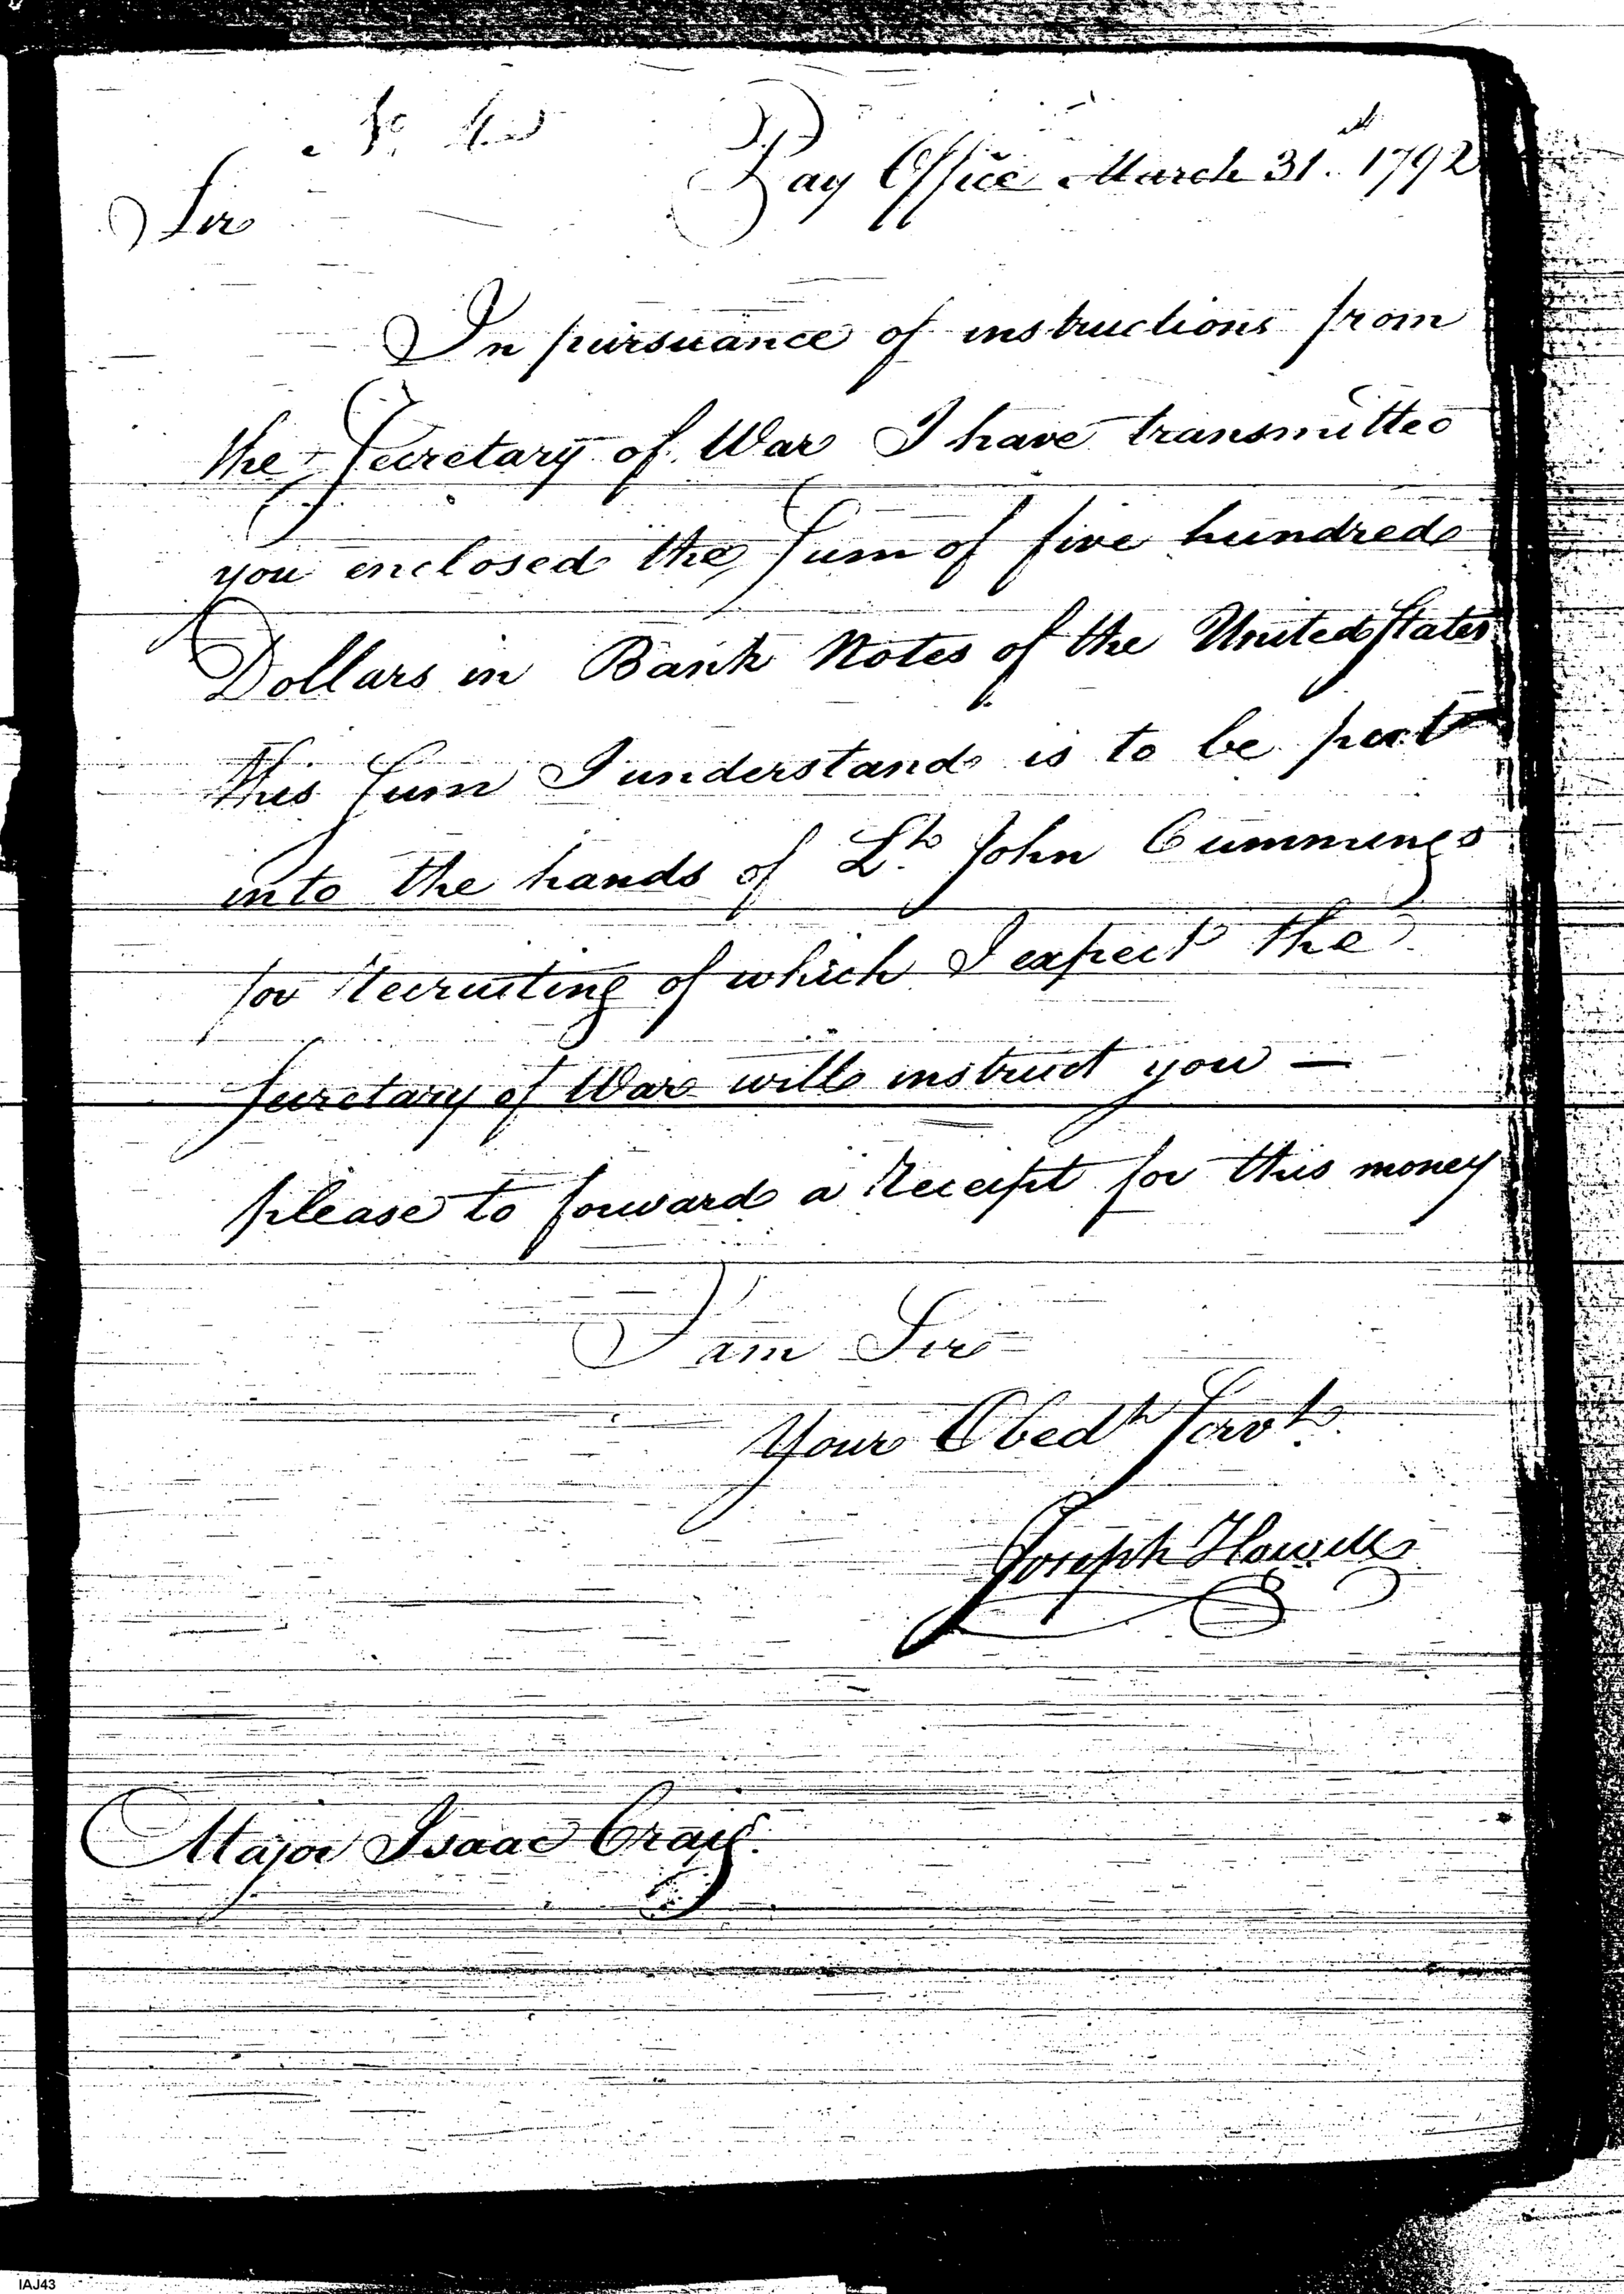 No. 4
Pay Office March 31st. 1792
Sir
In pursuance of instructions from
the Secretary of War I have transmitted
you enclosed the Sum of five hundred
Dollars in Bank Notes of the United States
this Sum I understand is to be put
into the hands of Lt. John Cummings
for Recruiting of which I expect the
Secretary of War will instruct you —
please to forward a Receipt for this money
I am Sir
Your Obedt Servt.
Joseph Howell
Major Isaac Craig.
IAJ43